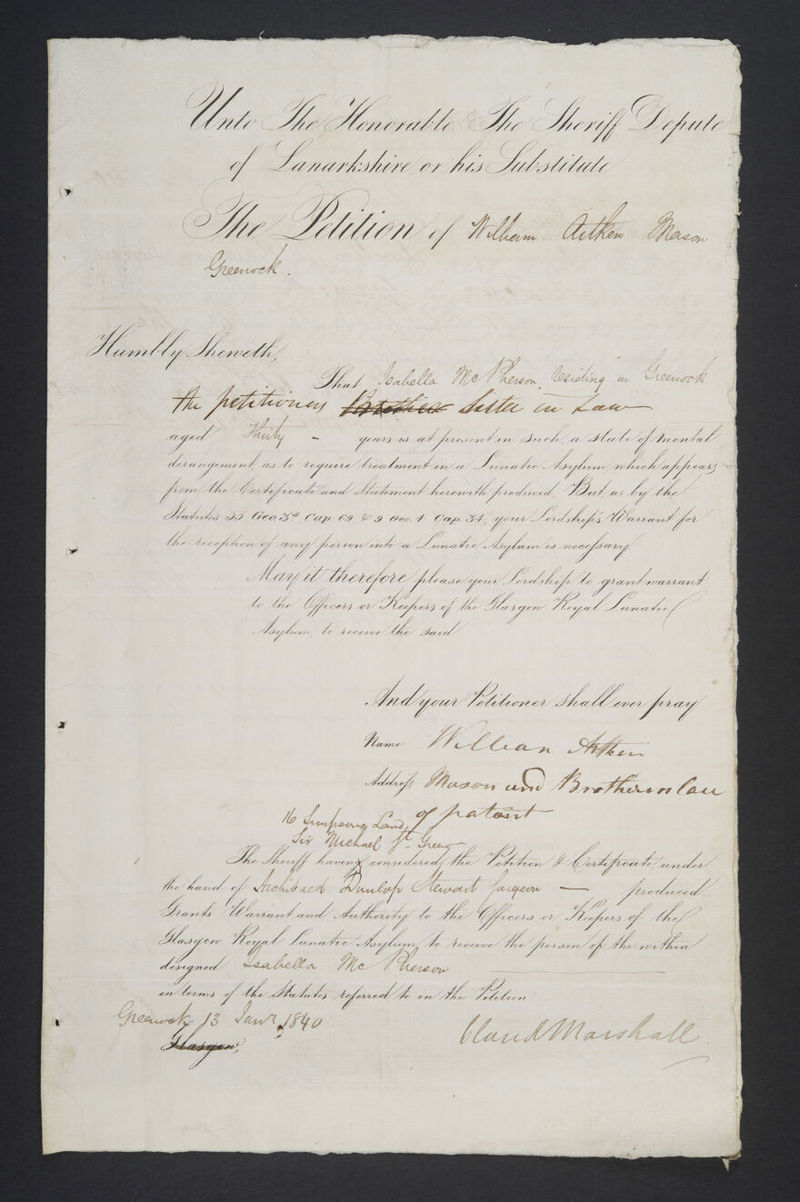 Unto The Honorable The Sheriff Depute
of Lanarkshire or his Substitute
The Petition of William Aitken Mason
Greenock.
Humbly Sheweth,
That Isabella McPherson, residing in Greenock
the petitioners Brother Sister in Law
aged Thirty - years is at present in such a state of mental
derangement, as to require treatment in a Lunatic Asylum which appears
from the Certificate and Statement herewith produced. But, as by the
Statutes 55 Geo 3d Cap 69 & 9 Geo. 4 Cap. 34, your Lordship's Warrant for
the reception of any person into a Lunatic Asylum is necessary
May it therefore please your Lordship to grant warrant
to the Officers or Keepers of the Glasgow Royal Lunatic
Asylum, to receive the said
And your Petitioner shall ever pray
Name William Aitken
Address Mason and Brother in Law
of patient
16 Simpsons Land
Sir Michael St Greeo
The Sheriff having considered the Petition & Certificate under
the hand of Archibald Dunlop Stewart Surgeon — produced
Grants Warrant and Authority to the Officers or Keepers of the
Glasgow Royal Lunatic Asylum, to receive the person of the within
designed Isabella McPherson
in terms of the Statutes referred to in the Petition
Greenock 13 Janr 1840
Glasgow, Claud Marshall